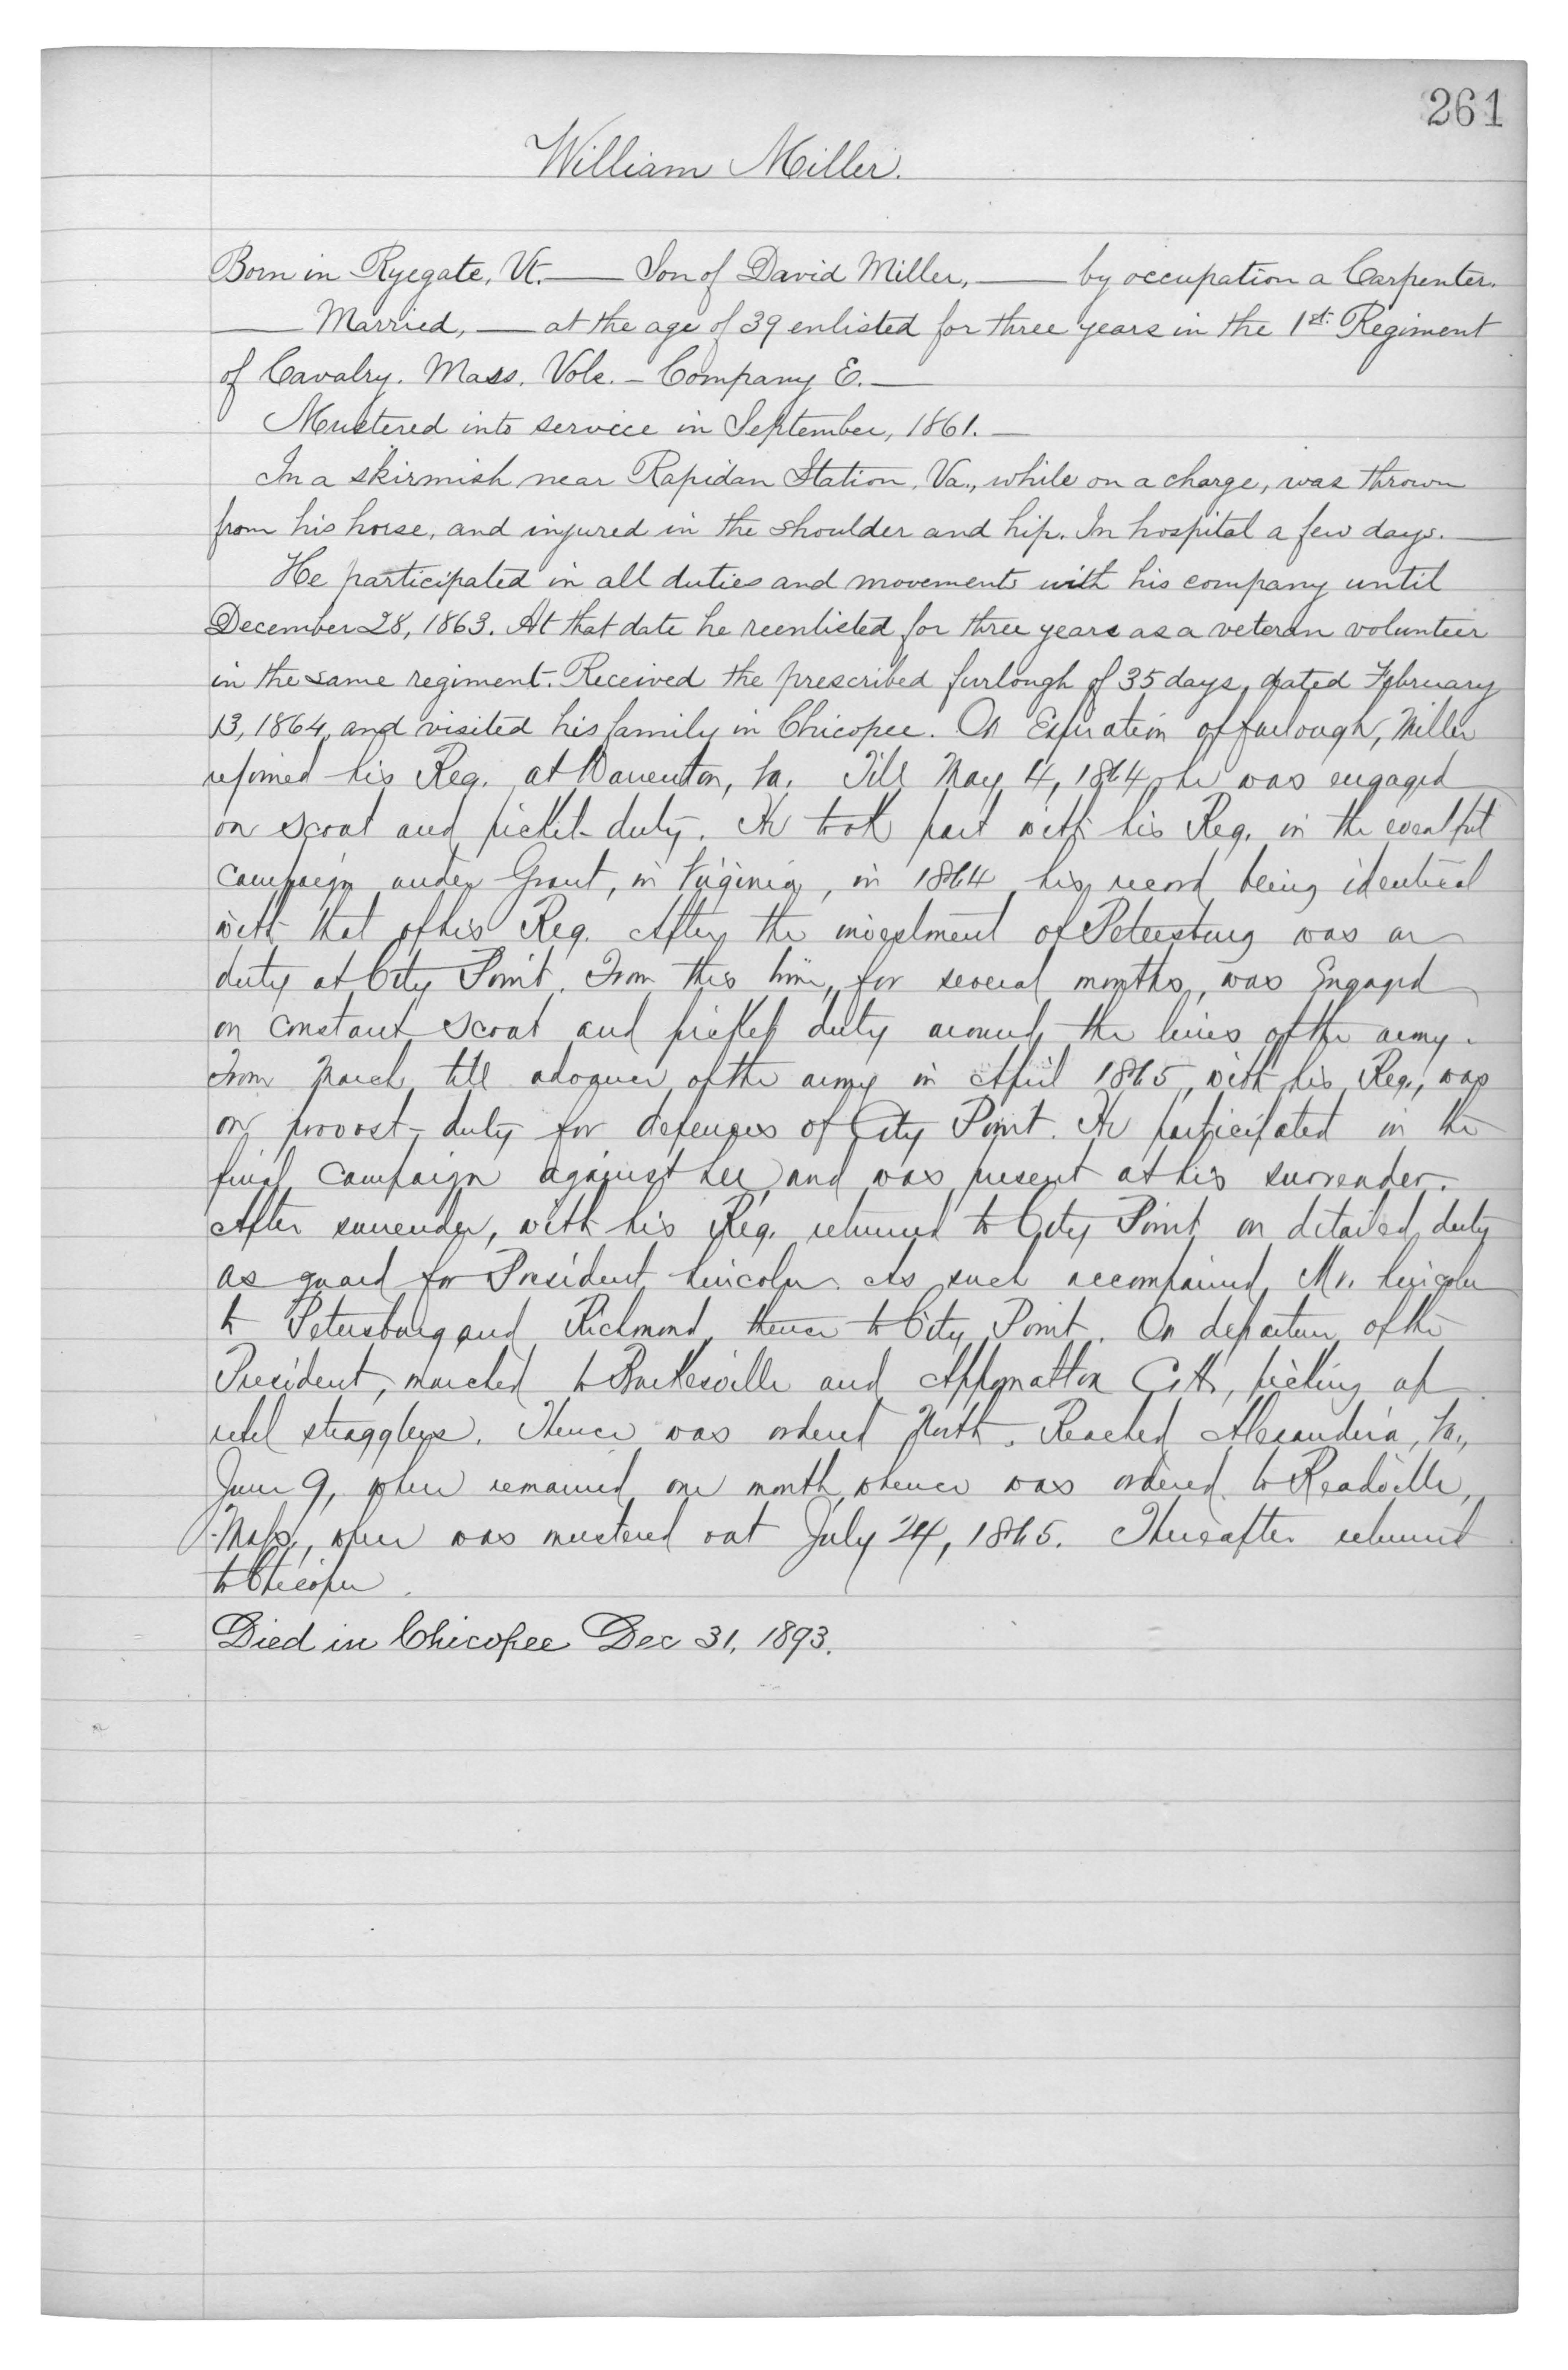 261
William Miller.
Born in Ryegate, Vt. — Son of David Miller, — by occupation a Carpenter.
— Married, — at the age of 39 enlisted for three years in the 1st. Regiment
of Cavalry. Mass. Vols. – Company E. —
Mustered into service in September, 1861. —
In a skirmish near Rapidan Station, Va., while on a charge, was thrown
from his horse, and injured in the shoulder and hip. In hospital a few days. —
He participated in all duties and movements with his company until
December 28, 1863. At that date he reenlisted for three years as a veteran volunteer
in the same regiment. Received the prescribed furlough of 35 days, dated February
13, 1864, and visited his family in Chicopee. On Expiration of furlough, Miller
rejoined his Reg. at Warrenton, Va. Till May 4, 1864, he was engaged
on scout and picket-duty. He took part with his Reg. in the eventful
campaign under Grant, in Virginia, in 1864, his record being identical
with that of his Reg. After the investment of Petersburg was on
duty at City Point. From this time, for several months, was Engaged
on constant scout and picket duty around the lines of the army.
From March till advance of the army in April 1865, with his Reg., was
on provost-duty for defences of City Point. He participated in the
final campaign against Lee, and was present at his surrender.
After surrender, with his Reg. returned to City Point on detailed duty
as guard for President Lincoln. As such accompanied Mr. Lincoln
to Petersburg and Richmond, thence to City Point. On departure of the
President, marched to Burkesville and Appomattox C.H., picking up
rebel stragglers. Thence was ordered North. Reached Alexandria, Va.,
June 9, where remained one month, whence was ordered to Readville,
Mass., where was mustered out July 24, 1865. Thereafter returned
to Chicopee.
Died in Chicopee Dec 31, 1893.